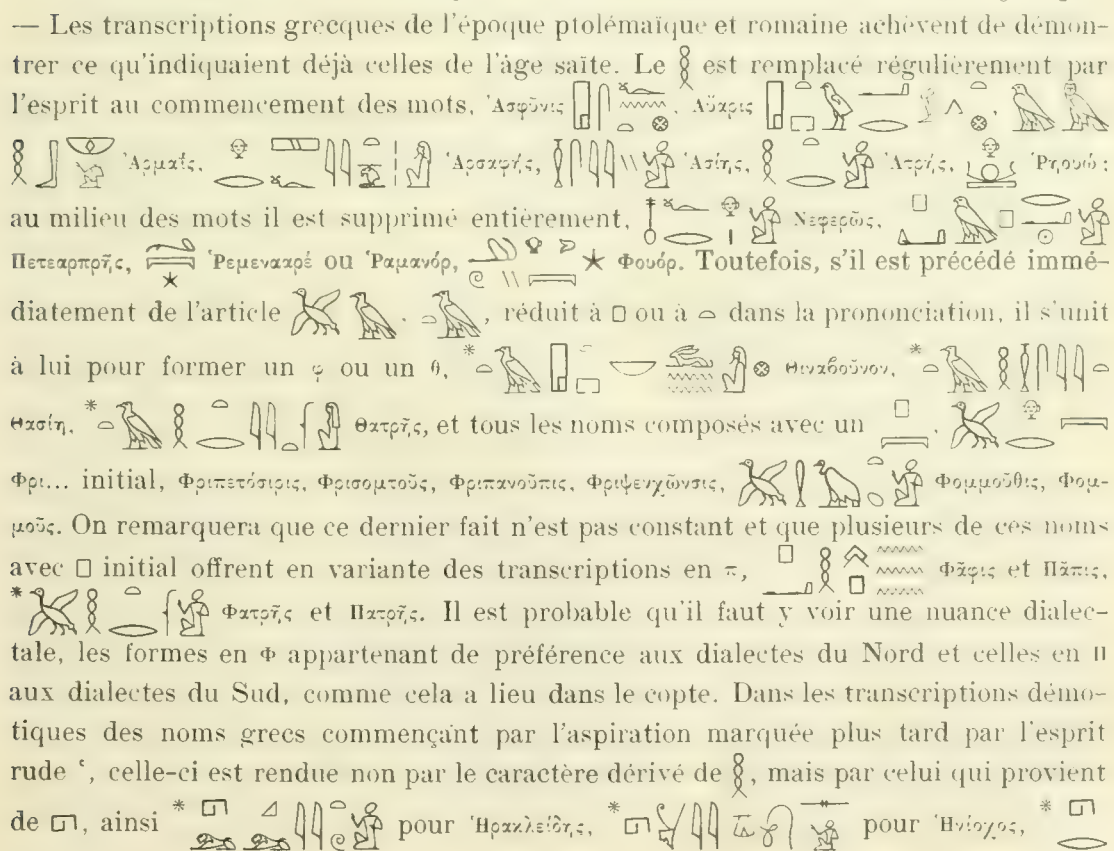 — Les transcriptions grecques de l'époque ptolémaïque et romaine achèvent de démon-
trer ce qu'indiquaient déjà celles de l'âge saïte. Le 𓎛 est remplacé régulièrement par
l'esprit au commencement des mots, Ἀσφῦνις Αὔαρις
Ἁρμαΐς, Ἁρσαφής, Ἁσίης, Ἁτρής, Ῥηουώ;
au milieu des mots il est supprimé entièrement, Νεφερῶς,
Πετεαρπρῆς, Ῥεμενααρέ ou Ῥαμανόρ, Φουόρ. Toutefois, s'il est précédé immé-
diatement de l'article 𓅮𓄿. 𓏏𓄿, réduit à 𓊪 ou à 𓏏 dans la prononciation, il s'unit
à lui pour former un φ ou un θ, * Θιναβούνον, *
Θασίη, * Θατρῆς, et tous les noms composés avec un
Φρι... initial, Φριπετόσιρις, Φρισομτοῦς, Φριπανοῦπις, Φριψενχῶνσις, Φομμοῦθις, Φομ-
μοῦς. On remarquera que ce dernier fait n'est pas constant et que plusieurs de ces noms
avec 𓊪 initial offrent en variante des transcriptions en π, Φᾶφις et Πᾶπις,
* Φατρῆς et Πατρῆς. Il est probable qu'il faut y voir une nuance dialec-
tale, les formes en Φ appartenant de préférence aux dialectes du Nord et celles en Π
aux dialectes du Sud, comme cela a lieu dans le copte. Dans les transcriptions démo-
tiques des noms grecs commençant par l'aspiration marquée plus tard par l'esprit
rude ʽ, celle-ci est rendue non par le caractère dérivé de 𓎛, mais par celui qui provient
de 𓉔, ainsi * pour Ἡρακλείδης, * pour Ἡνίοχος, *